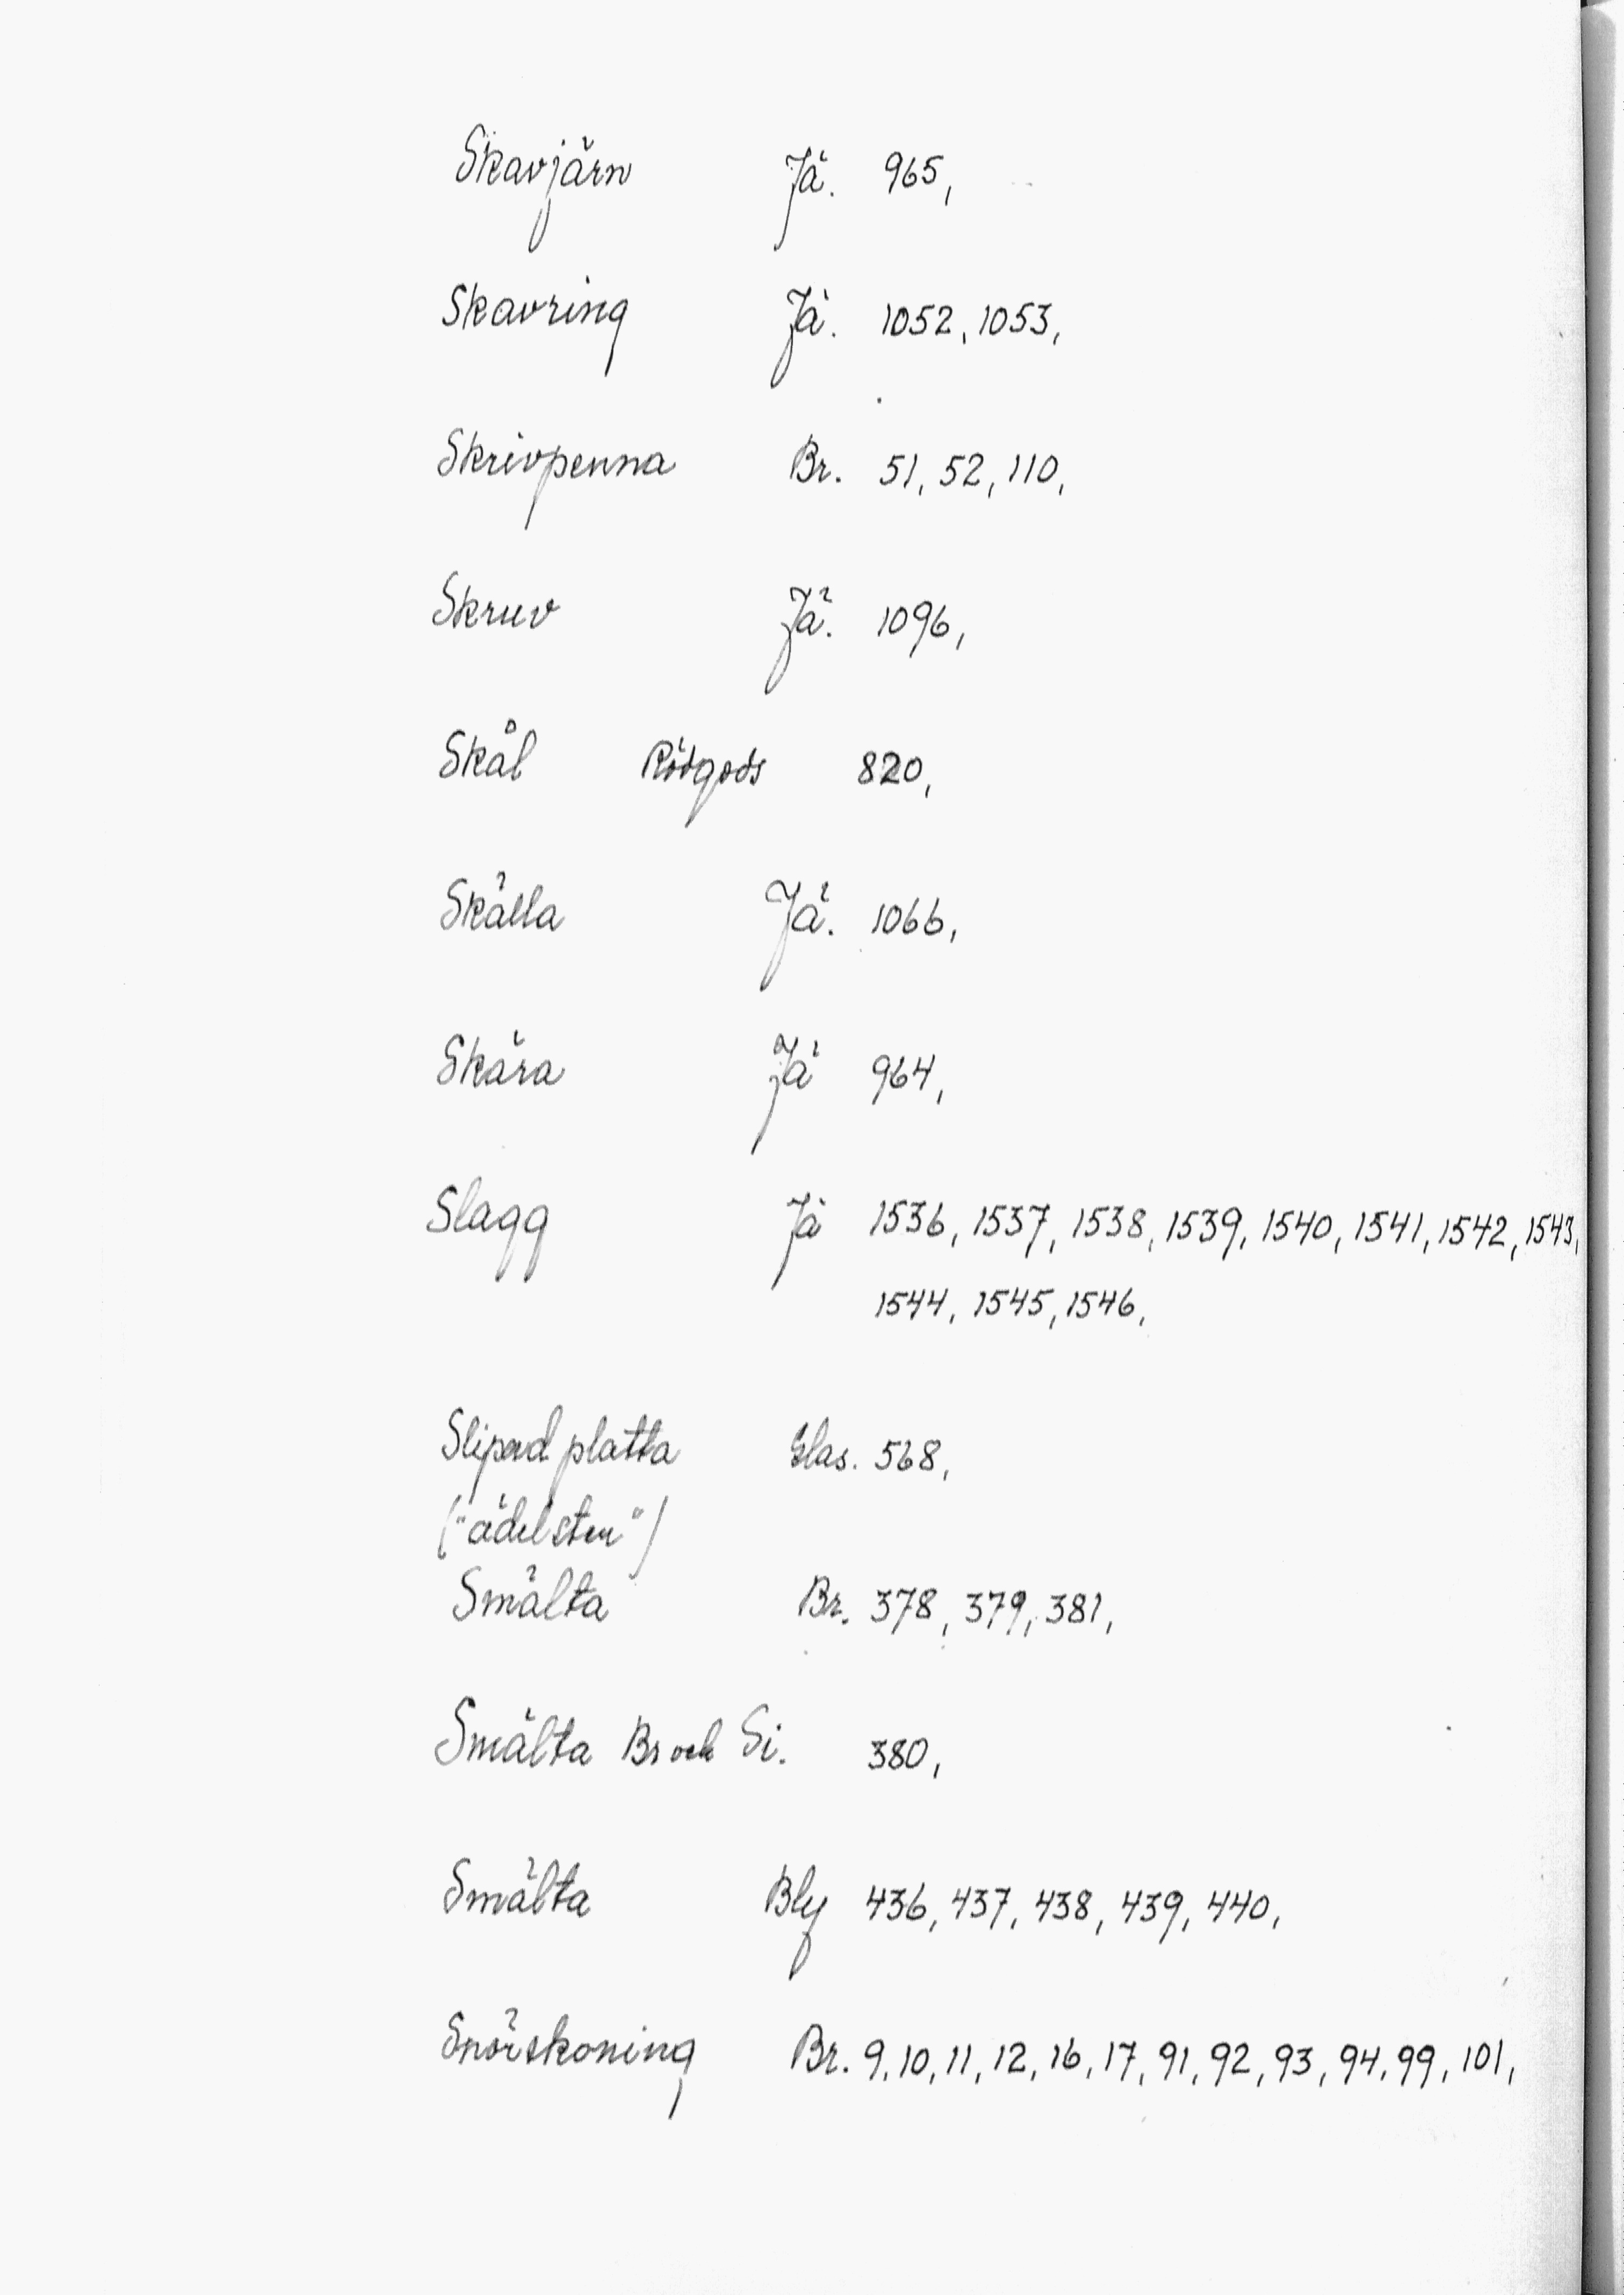 Skavjärn Jä. 965,
Skavring Jä. 1052, 1053,
Skrivpenna Br. 51, 52, 110,
Skruv Jä. 1096,
Skål Rödgods 820,
Skälla Jä. 1066,
Skära Jä 964,
Slagg Jä 1536, 1537, 1538, 1539, 1540, 1541, 1542, 1543,
1544, 1545, 1546,
Slipad platta Glas. 568,
("ädelsten")
Smälta Br. 378, 379, 381,
Smälta Br och Si. 380,
Smälta Bly 436, 437, 438, 439, 440,
Snörskoning Br. 9, 10, 11, 12, 16, 17, 91, 92, 93, 94, 99, 101,